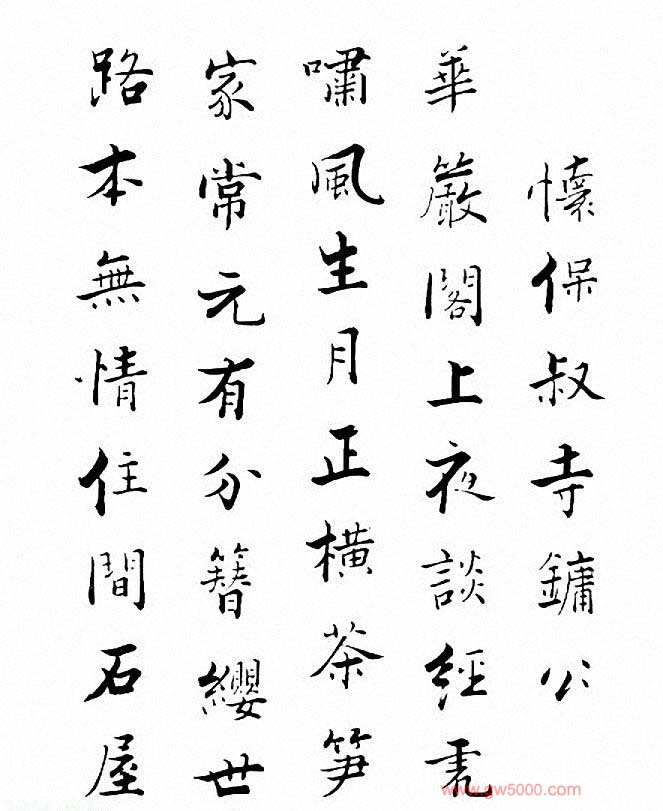 懷保叔寺鏞公
華嚴閣上夜談經虎
嘯風生月正橫茶笋
家常元有分簪纓世
路本無情住間石屋
www.gw5000.com